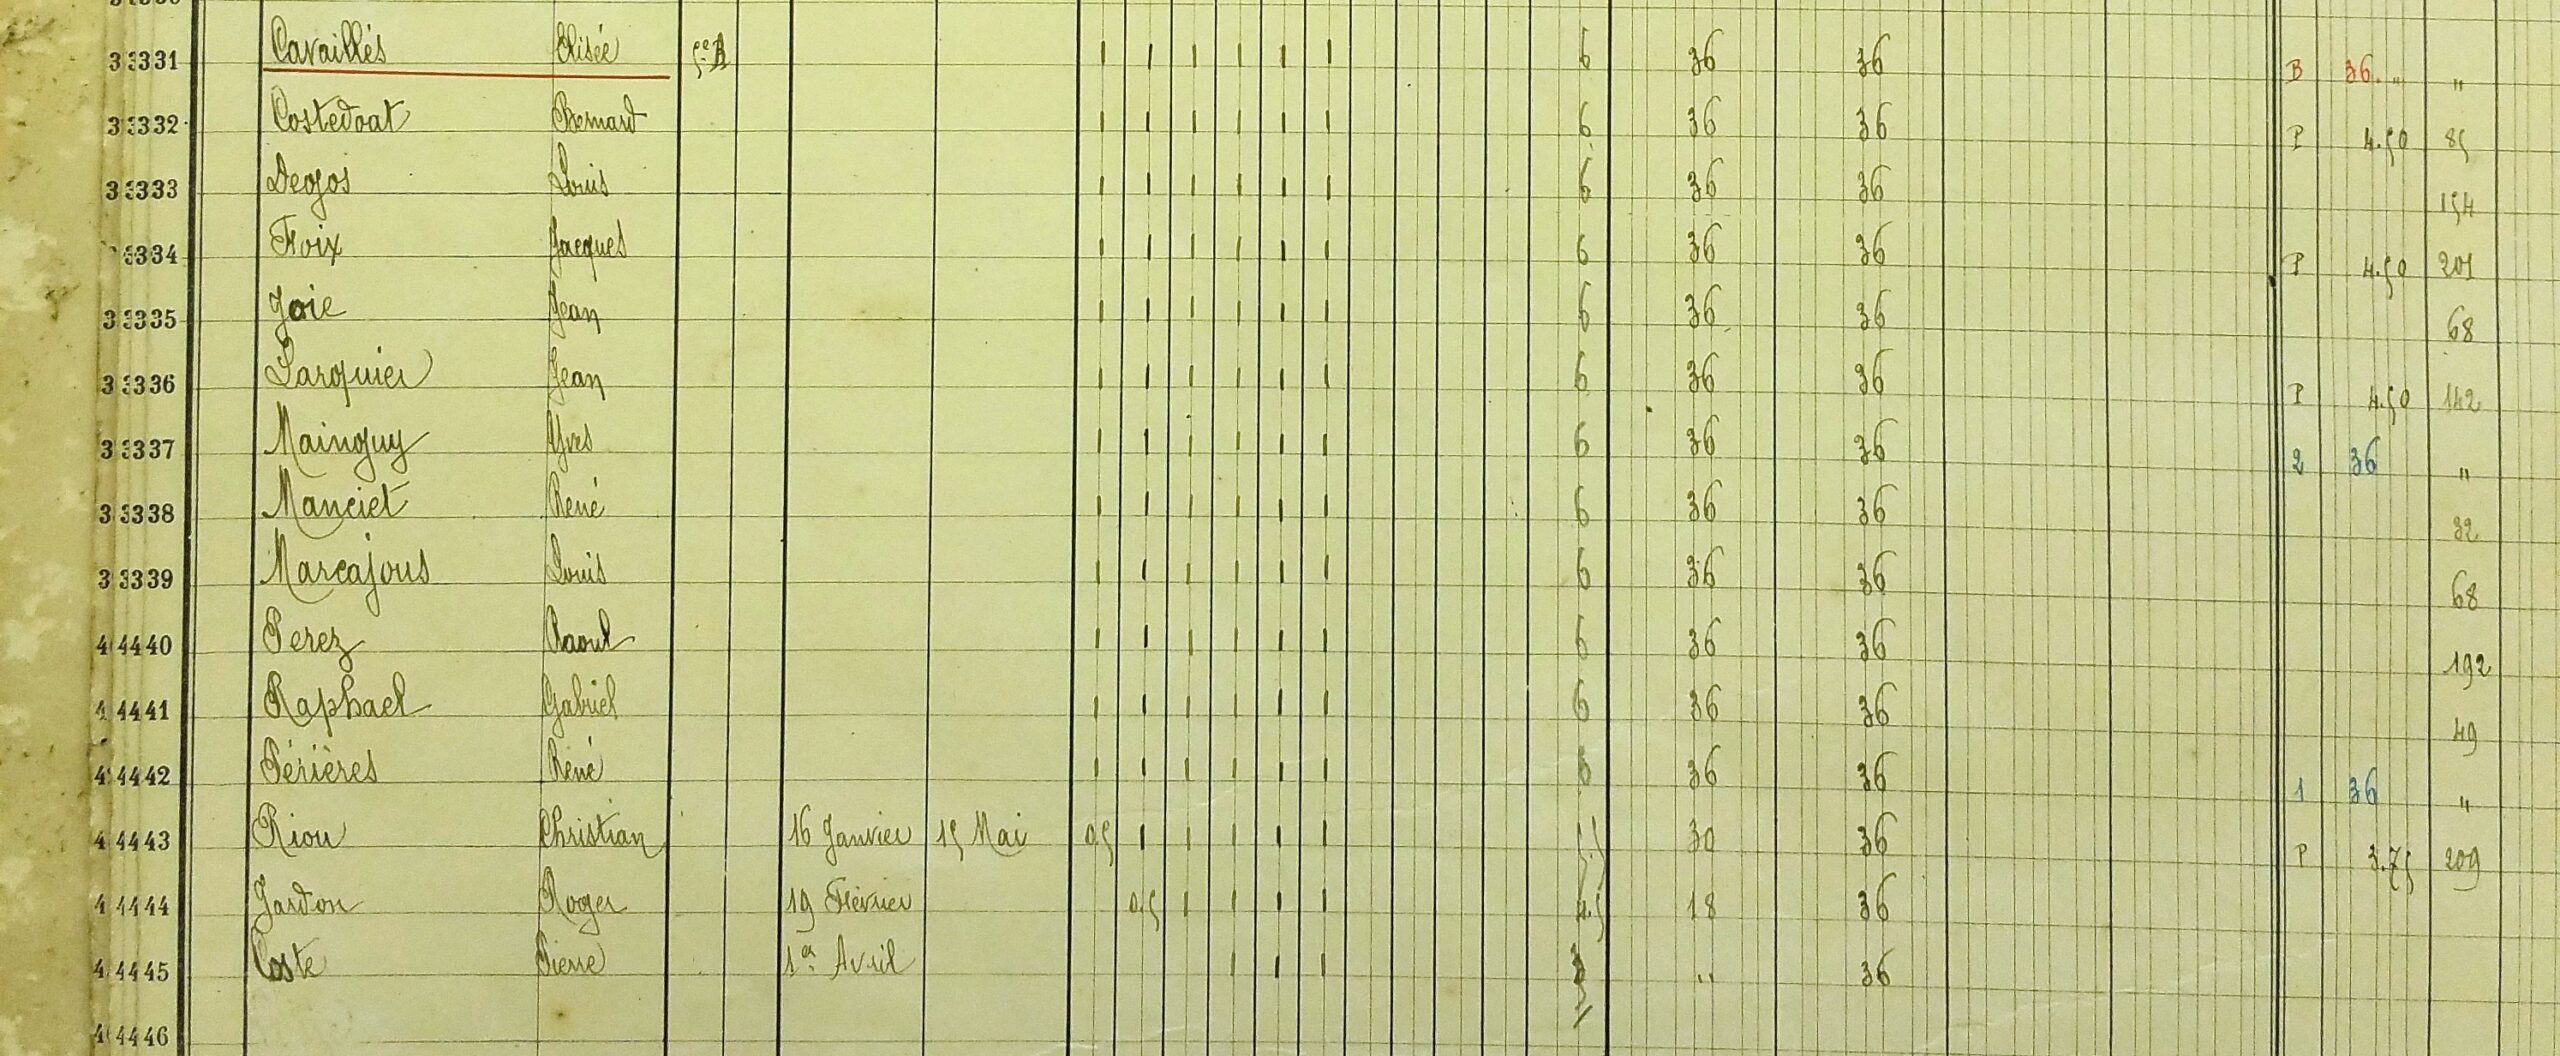 31 Cavaillés Elisée 5e B 1 1 1 1 1 1 6 36 36 B 36. " "
32 Costedoat Bernard 1 1 1 1 1 1 6 36 36 P 4.50 85
33 Degos Louis 1 1 1 1 1 1 6 36 36 154
34 Foix Jacques 1 1 1 1 1 1 6 36 36 P 4.50 201
35 Joie Jean 1 1 1 1 1 1 6 36 36 68
36 Larquier Jean 1 1 1 1 1 1 6 36 36 P 4.50 142
37 Mainguy Yves 1 1 1 1 1 1 6 36 36 2 36 "
38 Manciet René 1 1 1 1 1 1 6 36 36 32
39 Marcajous Louis 1 1 1 1 1 1 6 36 36 68
40 Perez Raoul 1 1 1 1 1 1 6 36 36 192
41 Raphael Gabriel 1 1 1 1 1 1 6 36 36 49
42 Périères René 1 1 1 1 1 1 6 36 36 1 36 "
43 Riou Christian 16 Janvier 15 Mai 0.5 1 1 1 1 1 5.5 30 36 P 3.75 209
44 Jardon Roger 19 Février 0.5 1 1 1 1 4.5 18 36
45 Coste Pierre 1er Avril 1 1 1 3 " 36
46